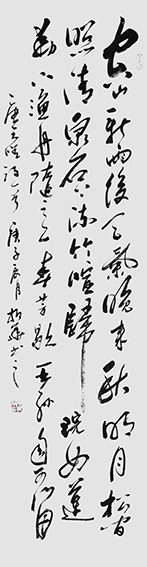 空山新雨後天氣晚來秋明月松間
照清泉石上流竹喧歸浣女蓮
動下漁舟隨意春芳歇王孫自可留
唐王維詩 庚子 月 書之